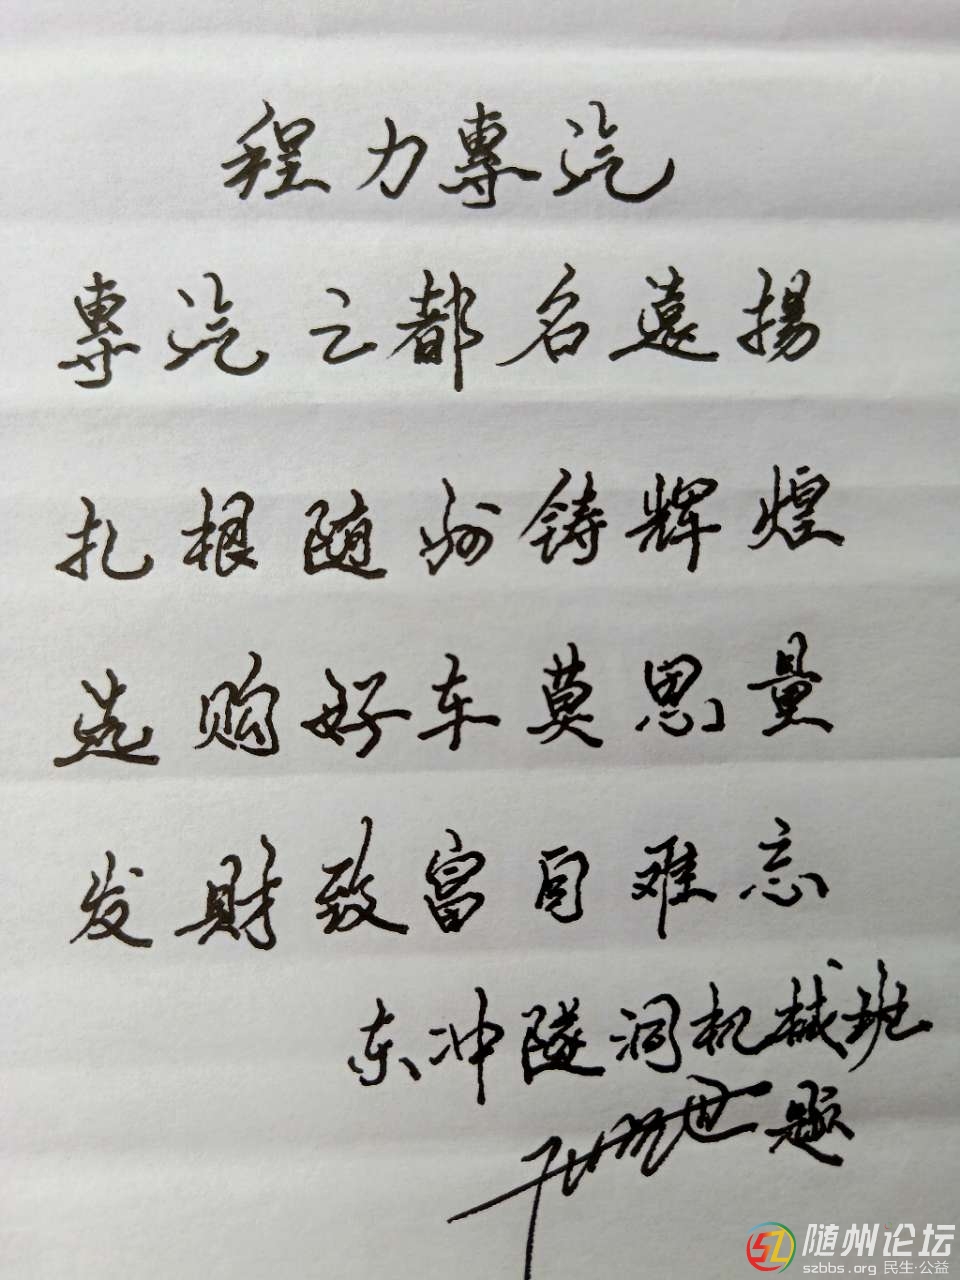 程力專汽
專汽之都名遠揚
扎根随州铸辉煌
选购好车莫思量
发财致富自难忘
东冲隧洞机械班
题
随州论坛
szbbs.org 民生·公益